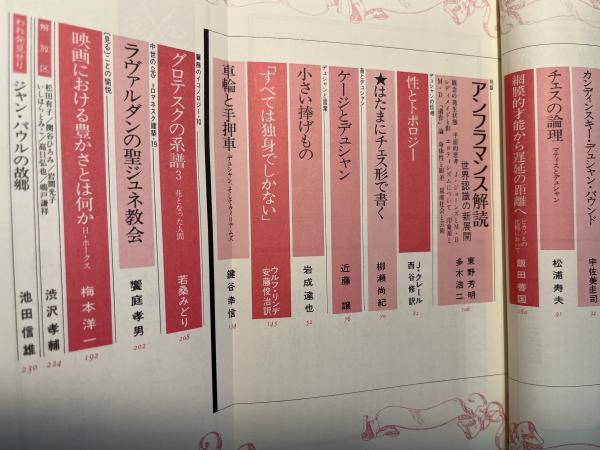 カンディンスキー・デュシャン・パウンド
宇佐美圭司
チェスの論理
マティスとデュシャン
松浦寿夫
91
網膜的才能から遅延の距離へ
ピカソとの比較において
飯田善国
160
対談
アンフラマンス解読
世界認識の新展開
東野芳明
多木浩二
106
デュシャンの位相
性とトポロジー
J・クレール
西谷修訳
82
★はたまにチェス形で書く
柳瀬尚紀
70
音とデュシャン
ケージとデュシャン
近藤譲
76
デュシャンと言葉
小さい捧げもの
岩成達也
52
「すべては独身でしかない」
ウルフ・リンデ
安藤俊治訳
145
車輪と手押車
デュシャンとウィリアムズ
鍵谷幸信
134
薔薇のイコノロジー・10
グロテスクの系譜3
花となった人間
若桑みどり
208
中世の〈光〉―ロマネスク建築・19
ラヴァルダンの聖ジュネ教会
饗庭孝男
202
[見る]ことの愉悦
映画における豊かさとは何か
H・ホークス
梅本洋一
192
解放区
松田有子／関谷ひろみ／岩間光子
いしはらとみこ／高日弘也／鳴戸謙祥
渋沢孝輔
224
われ発見せり
ジャン・パウルの故郷
池田信雄
230